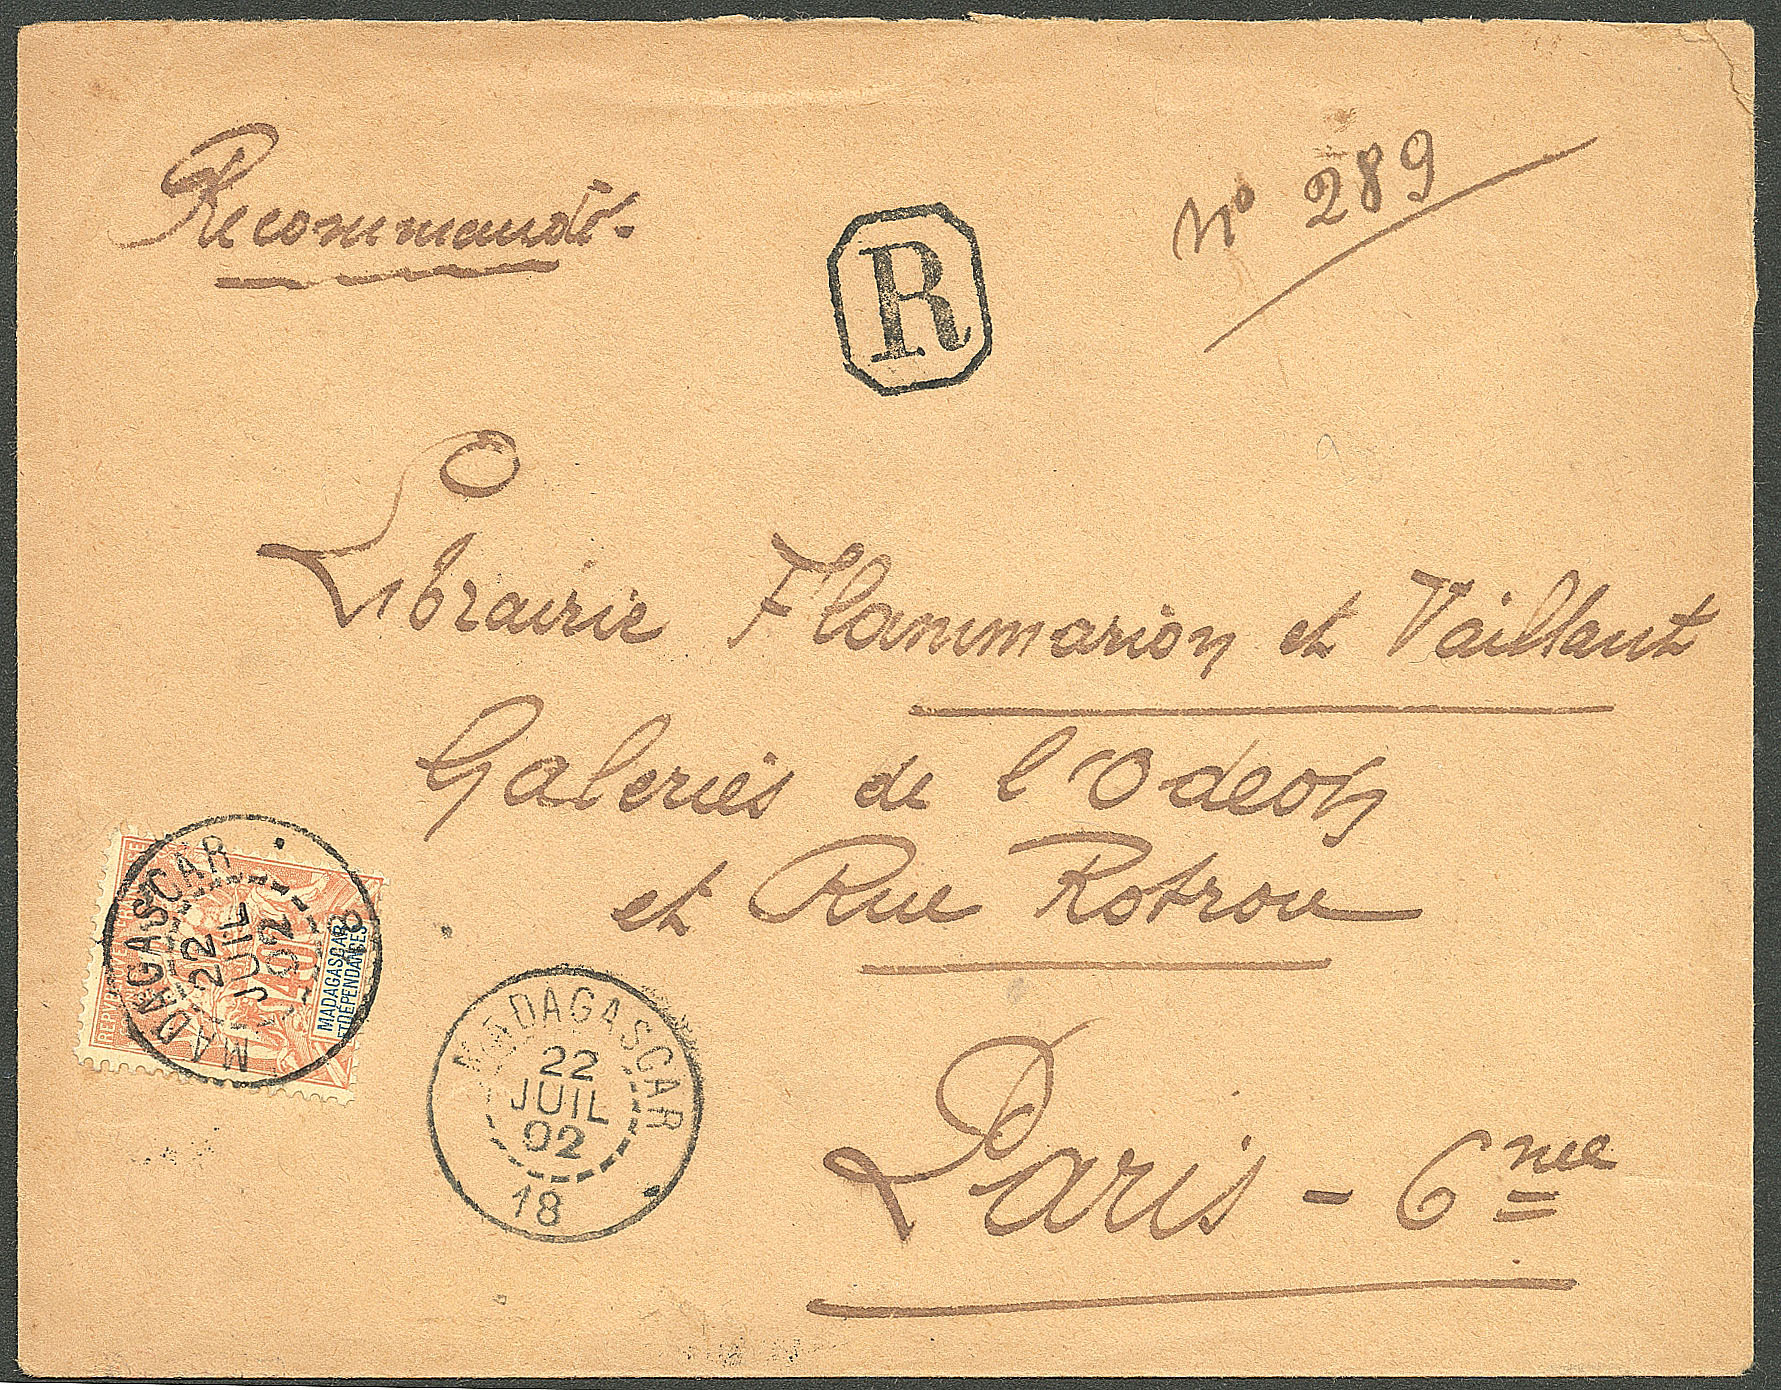 Recommandé.
R
No 289
Librairie Flammarion et Vaillant
Galeries de l'Odeon
et Rue Rotrou
Paris - 6me
MADAGASCAR
22
JUIL
02
18
MADAGASCAR
22
JUIL
02
18
MADAGASCAR
ET DÉPENDANCES
40